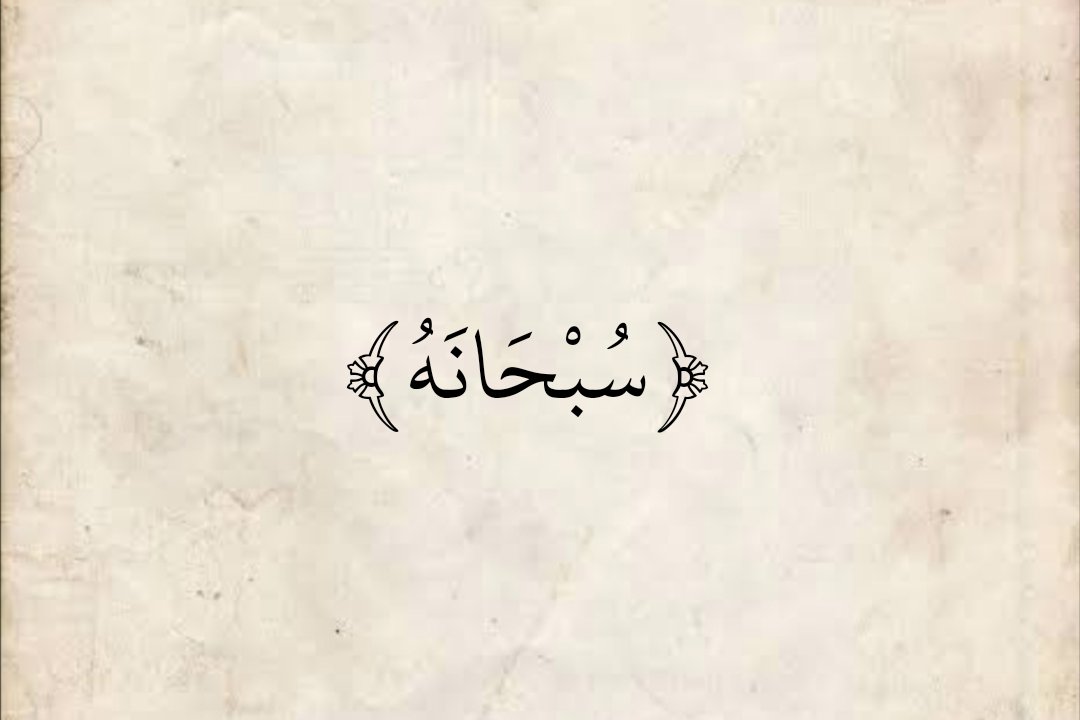 ﴿ سُبْحَانَهُ ﴾